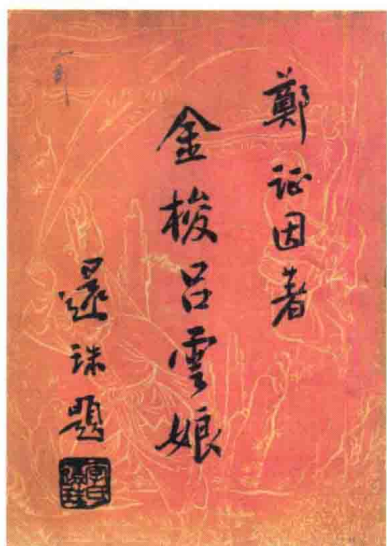 鄭证因著
金梭呂雲娘
還珠題